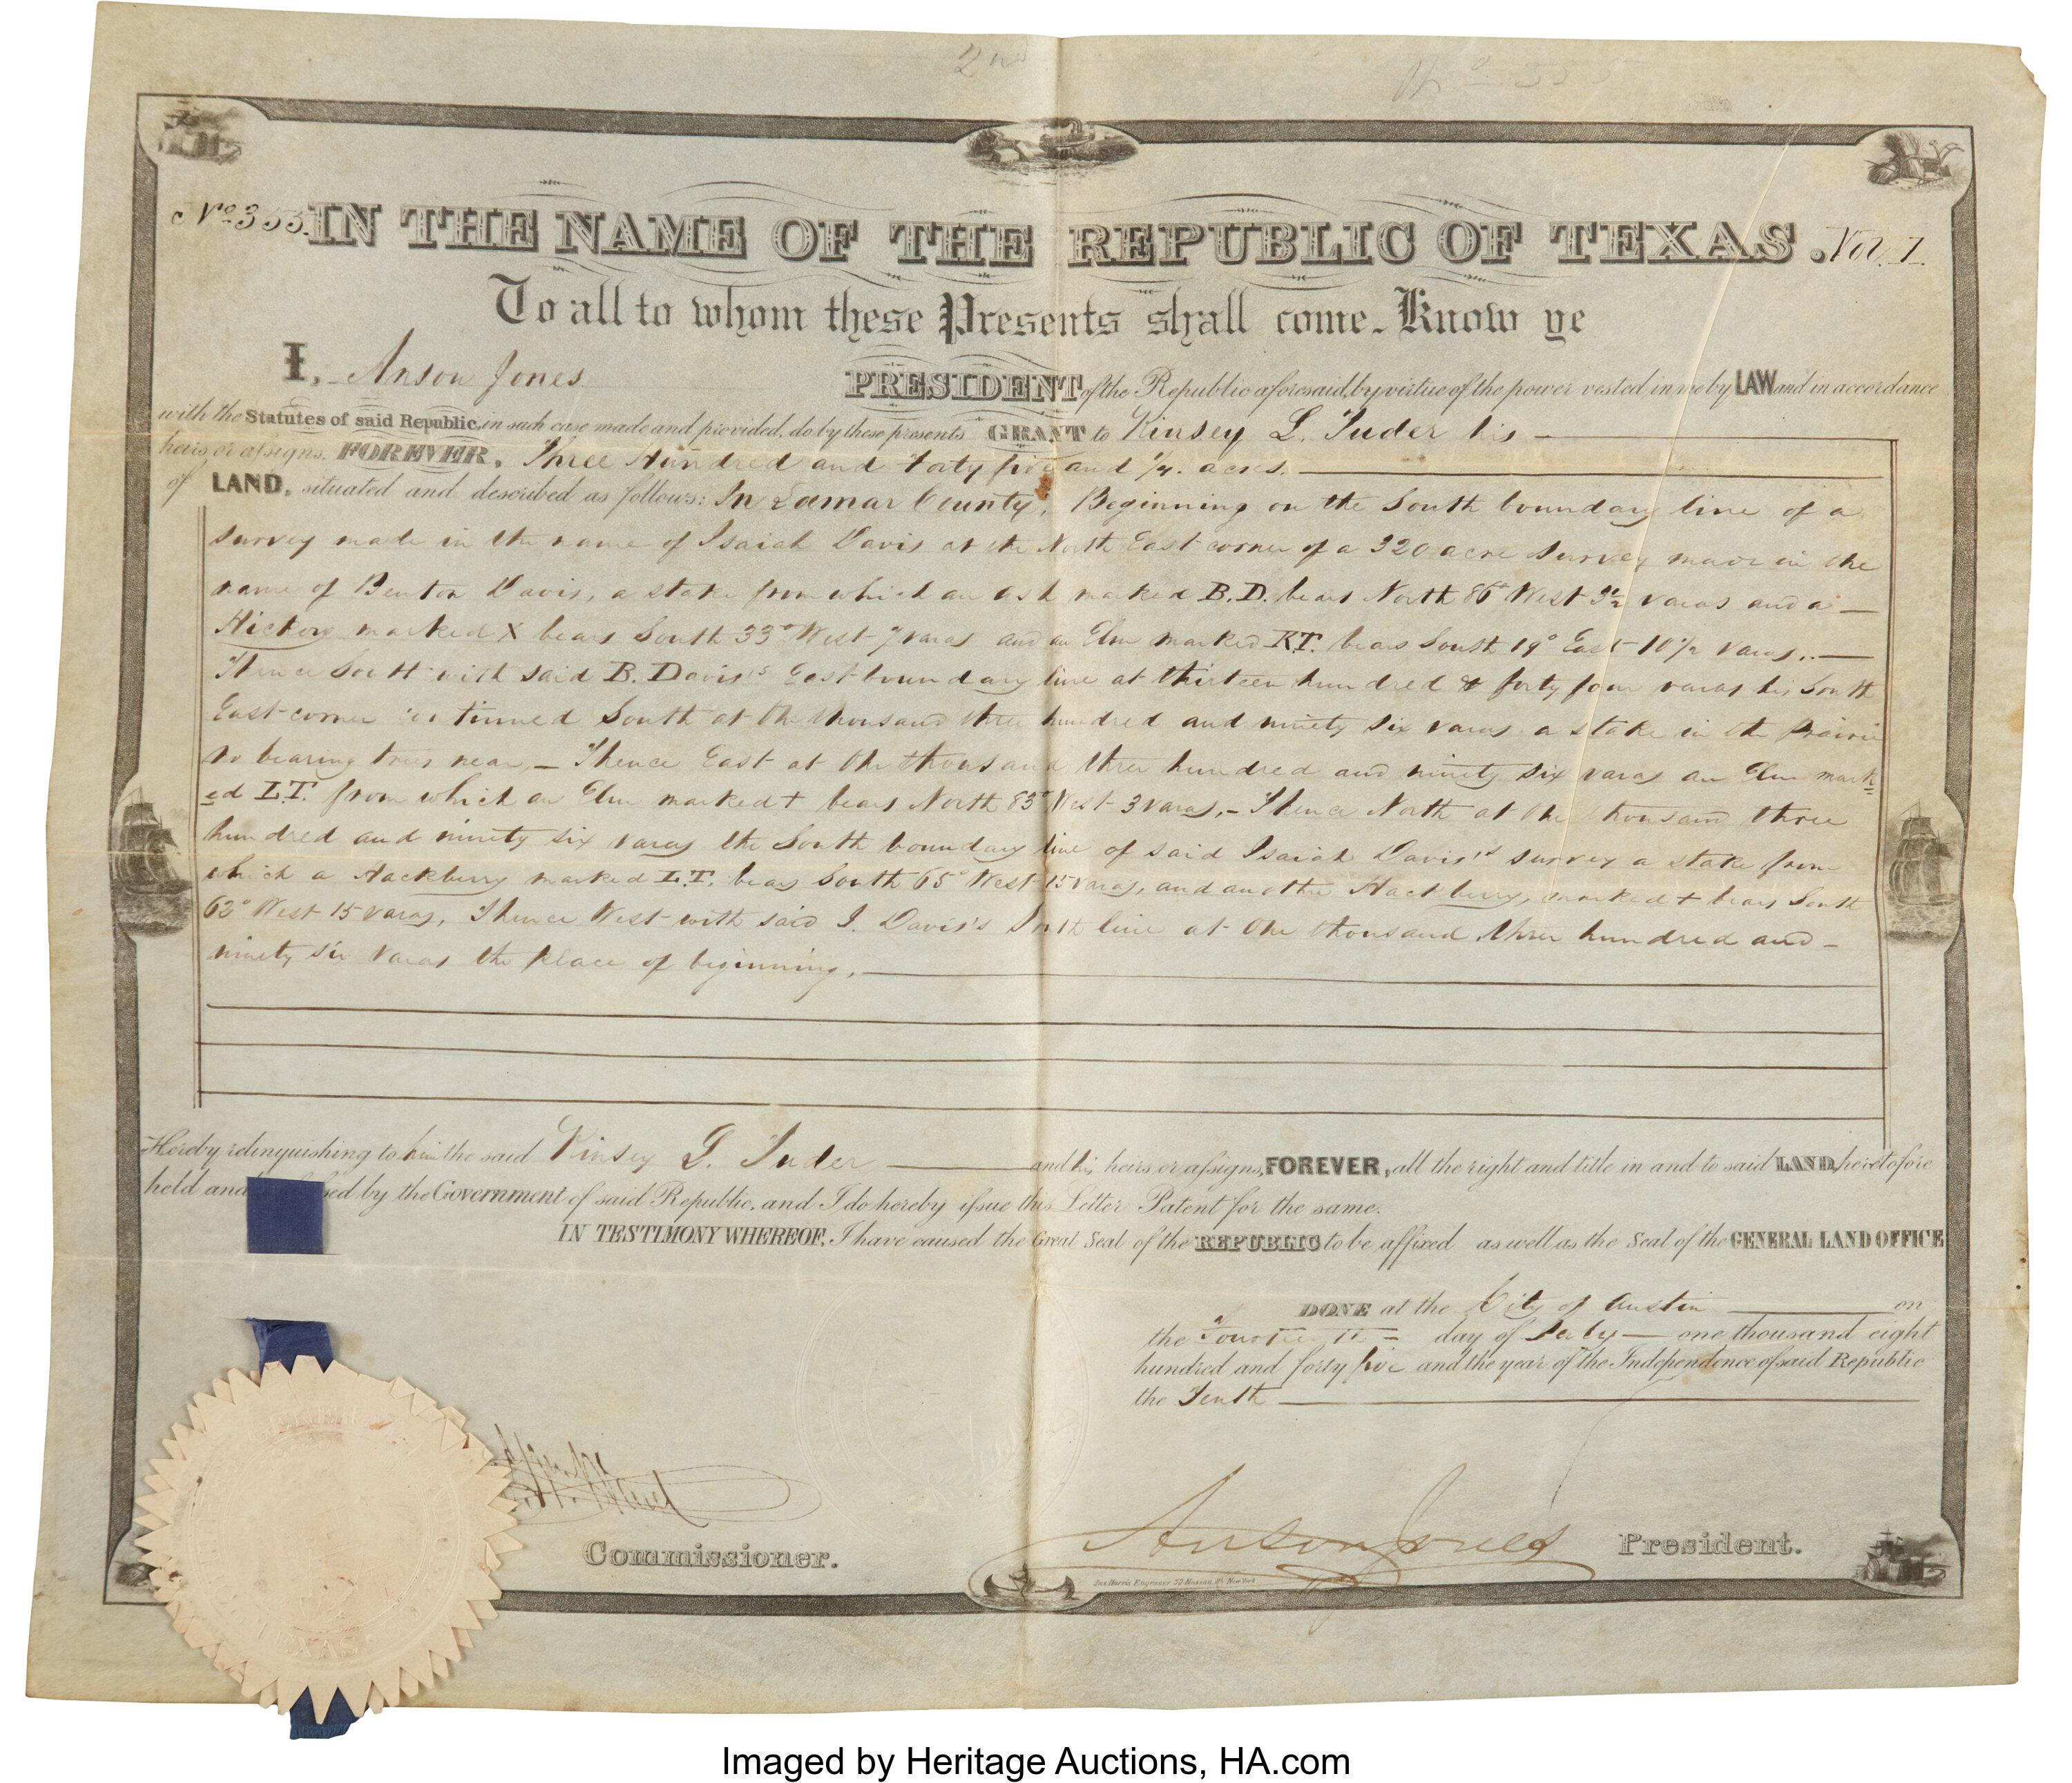 2nd
No 353. IN THE NAME OF THE REPUBLIC OF TEXAS. Vol. 1.
To all to whom these Presents shall come. Know ye
I, Anson Jones PRESIDENT of the Republic aforesaid, by virtue of the power vested in me by LAW and in accordance
with the Statutes of said Republic, in such case made and provided, do by these presents GRANT to Kinsey L. Tuder his
heirs or assigns, FOREVER, Three Hundred and forty five and 1/4. acres.
of LAND, situated and described as follows: In Lamar County, Beginning on the South boundary line of a
survey made in the name of Isaiah Davis at the North East corner of a 320 acre survey made in the
name of Benton Davis, a stake from which an ash marked B.D. bears North 86° West 3 1/2 varas and a
Hickory marked X bears South 33° West 7 varas and an Elm marked K.T. bears South 19° East 10 1/2 varas,
Thence South with said B. Davis's East boundary line at thirteen hundred & forty four varas his South
East corner continued South at One thousand three hundred and ninety six varas a stake in the Prairie
no bearing trees near, Thence East at One thousand three hundred and ninety six varas an Elm mark=
ed L.T. from which an Elm marked + bears North 83° West 3 varas, Thence North at One thousand three
hundred and ninety six varas the South boundary line of said Isaiah Davis's survey a stake from
which a Hackberry marked L.T. bears South 65° West 15 varas, and another Hackberry, marked + bears South
62° West 15 varas, Thence West with said I. Davis's South line at One thousand three hundred and
ninety six varas the place of beginning,
Hereby relinquishing to him the said Kinsey L. Tuder and his heirs or assigns, FOREVER, all the right and title in and to said LAND, heretofore
held and by the Government of said Republic, and I do hereby issue this Letter Patent for the same.
IN TESTIMONY WHEREOF, I have caused the Great Seal of the REPUBLIC to be affixed as well as the Seal of the GENERAL LAND OFFICE
DONE at the City of Austin on
the day of July one thousand eight
hundred and forty five and the year of the Independence of said Republic
the Tenth
Anson Jones President.
Commissioner.
Jas Harris Engraver 58 Nassau St. New York
TEXAS
Imaged by Heritage Auctions, HA.com